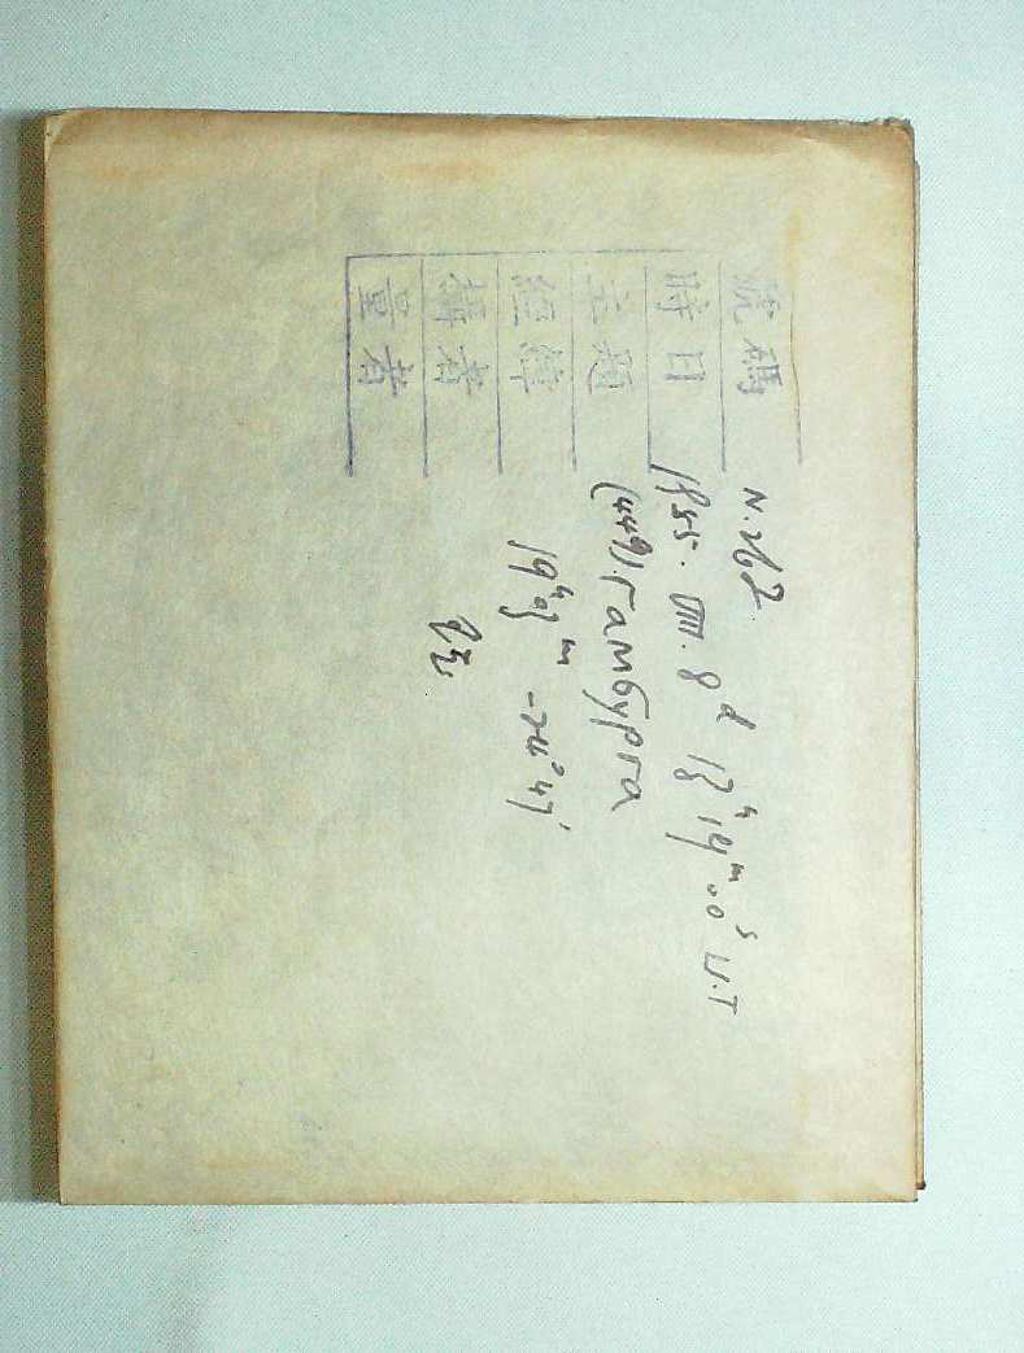 號碼 N.262
時日 1955. VIII. 8ᵈ 13ʰ 14ᵐ.00ˢ U.T
主題 (449). Гамбурга
經緯 19ʰ03ᵐ
攝者
量者